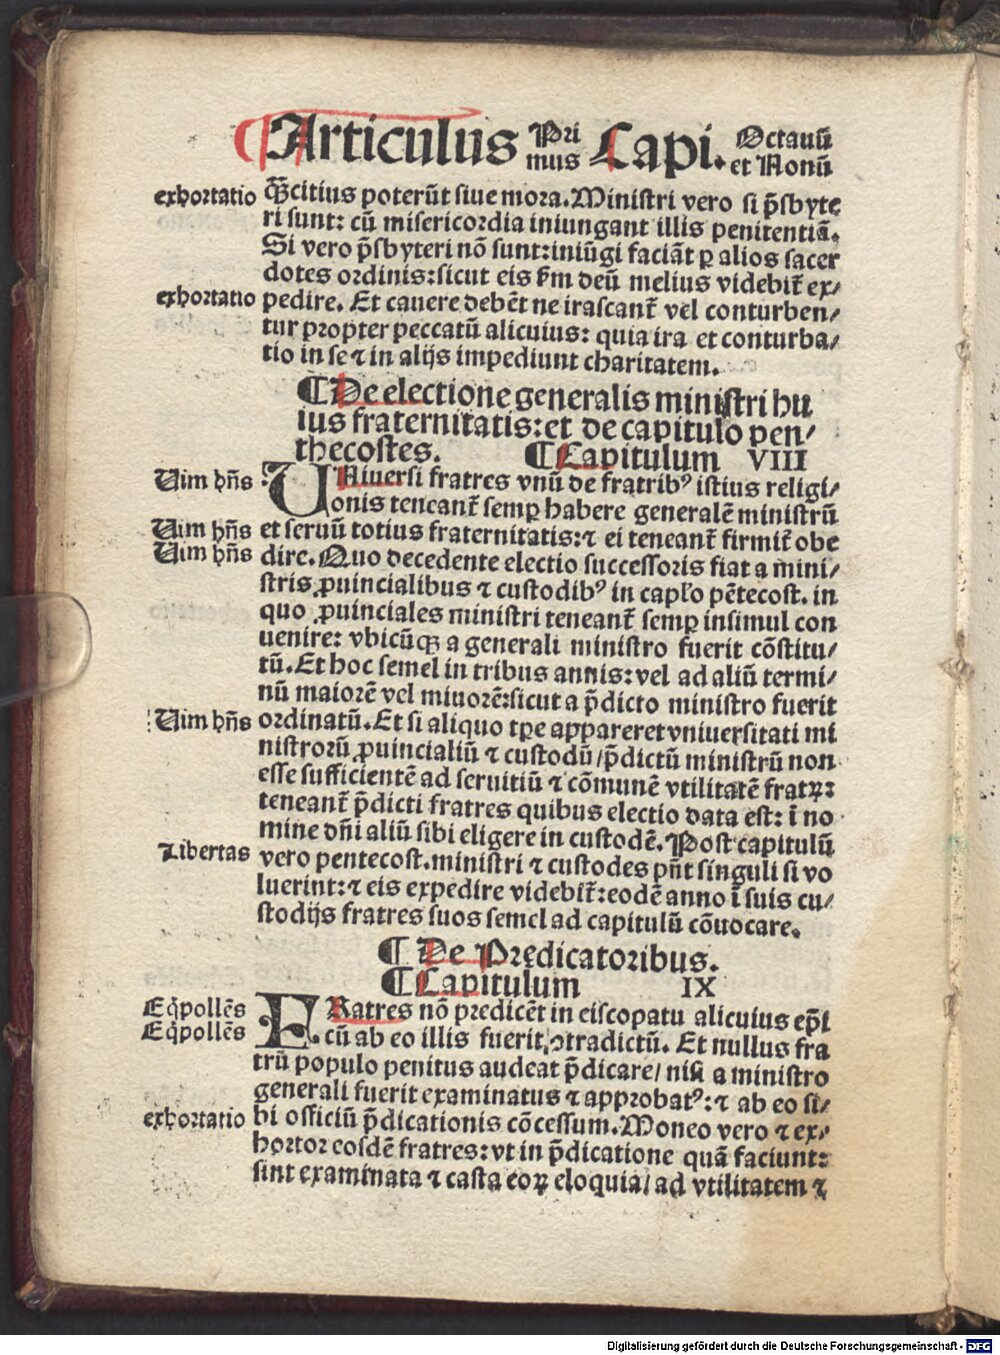 ¶Articulus Pri Capi. Octauū
mus et Nonū
exhortatio
qͣꝫcitius poterūt siue mora. Ministri vero si p̄sbyte
ri sunt: cū misericordia iniungant illis penitentiā.
Si vero p̄sbyteri nō sunt: iniūgi faciāt ꝑ alios sacer
dotes ordinis: sicut eis ẜm deū melius videbit̄ ex/
exhortatio
pedire. Et cauere debēt ne irascant̄ vel conturben/
tur propter peccatū alicuius: quia ira et conturba/
tio in se ⁊ in alijs impediunt charitatem.
¶De electione generalis ministri hu
ius fraternitatis: et de capitulo pen/
thecostes. ¶Capitulum VIII
Uim hn̄s
UNiuersi fratres vnū de fratribꝰ istius religi/
onis teneant̄ semꝑ habere generalē ministrū
Uim hn̄s
et seruū totius fraternitatis: ⁊ ei teneant̄ firmit̄ obe
Uim hn̄s
dire. Quo decedente electio successoris fiat a mini/
stris ꝓuincialibus ⁊ custodibꝰ in capl'o pētecost. in
quo ꝓuinciales ministri teneant̄ semꝑ insimul con
uenire: vbicūqꝫ a generali ministro fuerit cōstitu/
tū. Et hoc semel in tribus annis: vel ad aliū termi/
nū maiorē vel minorē: sicut a p̄dicto ministro fuerit
Uim hn̄s
ordinatū. Et si aliquo tp̄e appareret vniuersitati mi
nistrorū ꝓuincialiū ⁊ custodū/ p̄dictū ministrū non
esse sufficientē ad seruitiū ⁊ cōmunē vtilitatē fratrꝝ:
teneant̄ p̄dicti fratres quibus electio data est: ī no
mine dn̄i aliū sibi eligere in custodē. Post capitulū
Libertas
vero pentecost. ministri ⁊ custodes pn̄t singuli si vo
luerint: ⁊ eis expedire videbit̄: eodē anno ī suis cu/
stodijs fratres suos semel ad capitulū cōuocare.
¶De Predicatoribus.
¶Capitulum IX
Eq̄pollēs
FRatres nō predicēt in eiscopatu alicuius ep̄i
Eq̄pollēs
cū ab eo illis fuerit ꝯtradictū. Et nullus fra
trū populo penitus audeat p̄dicare/ nisi a ministro
generali fuerit examinatus ⁊ approbatꝰ: ⁊ ab eo si/
exhortatio
bi officiū p̄dicationis cōcessum. Moneo vero ⁊ ex/
hortor eosdē fratres: vt in p̄dicatione quā faciunt:
sint examinata ⁊ casta eoꝝ eloquia/ ad vtilitatem ⁊
Digitalisierung gefördert durch die Deutsche Forschungsgemeinschaft - DFG